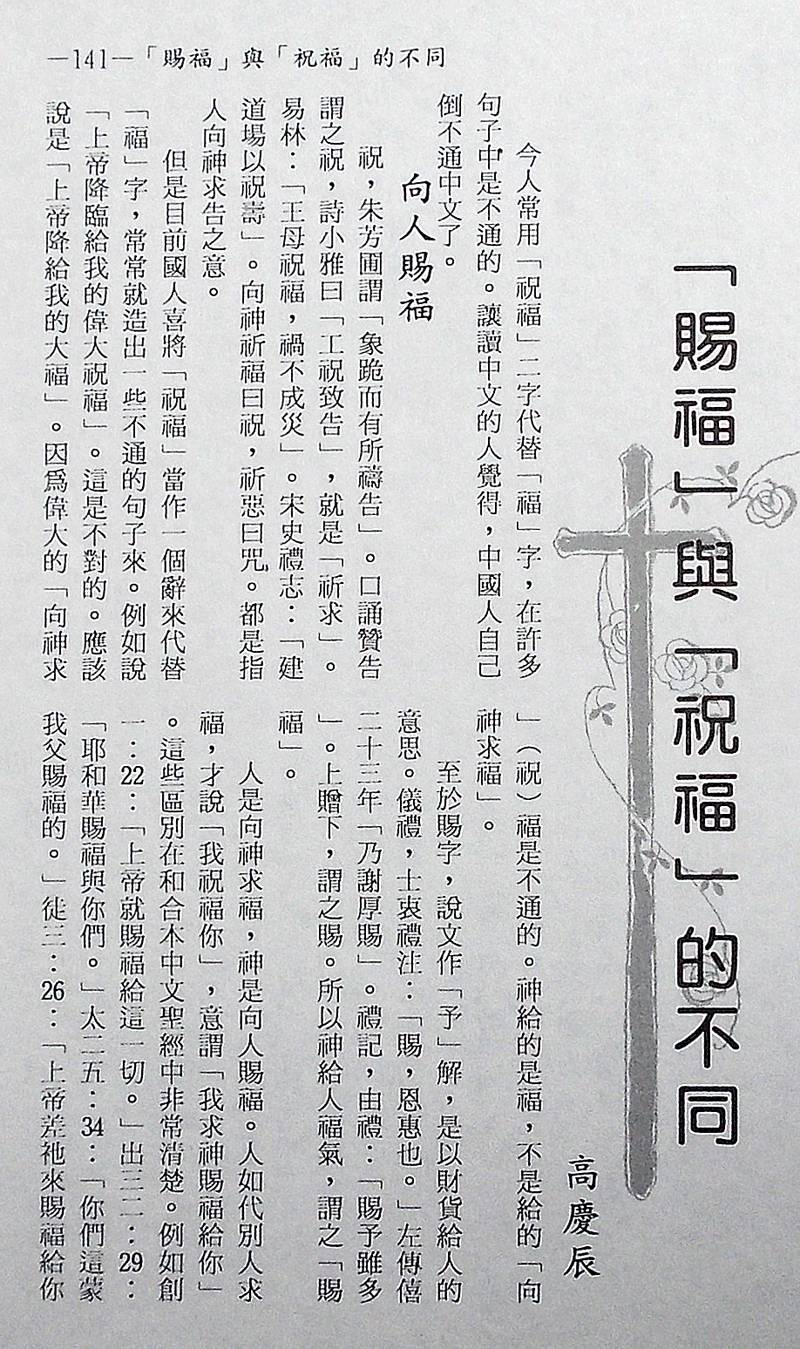 —141—「賜福」與「祝福」的不同
「賜福」與「祝福」的不同
高慶辰
今人常用「祝福」二字代替「福」字，在許多
句子中是不通的。讓讀中文的人覺得，中國人自己
倒不通中文了。
向人賜福
祝，朱芳圃謂「象跪而有所禱告」。口誦贊告
謂之祝，詩小雅曰「工祝致告」，就是「祈求」。
易林：「王母祝福，禍不成災」。宋史禮志：「建
道場以祝壽」。向神祈福曰祝，祈惡曰咒。都是指
人向神求告之意。
但是目前國人喜將「祝福」當作一個辭來代替
「福」字，常常就造出一些不通的句子來。例如說
「上帝降臨給我的偉大祝福」。這是不對的。應該
說是「上帝降給我的大福」。因爲偉大的「向神求
」（祝）福是不通的。神給的是福，不是給的「向
神求福」。
至於賜字，說文作「予」解，是以財貨給人的
意思。儀禮，士衷禮注：「賜，恩惠也。」左傳僖
二十三年「乃謝厚賜」。禮記，由禮：「賜予雖多
」。上贈下，謂之賜。所以神給人福氣，謂之「賜
福」。
人是向神求福，神是向人賜福。人如代別人求
福，才說「我祝福你」，意謂「我求神賜福給你」
。這些區別在和合本中文聖經中非常清楚。例如創
一：22：「上帝就賜福給這一切。」出三二：29：
「耶和華賜福與你們。」太二五：34：「你們這蒙
我父賜福的。」徒三：26：「上帝差祂來賜福給你